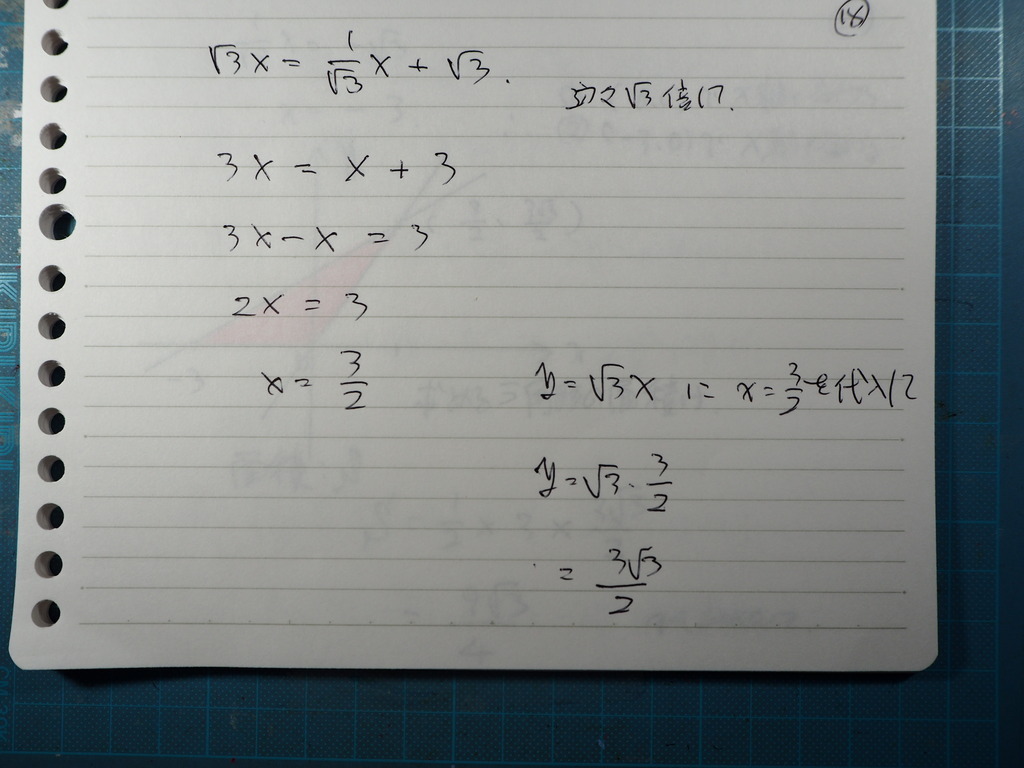 18
√3x = 1/√3 x + √3.
両々√3倍して.
3x = x + 3
3x - x = 3
2x = 3
x = 3/2
y = √3x に x = 3/2を代入して
y = √3 · 3/2
= 3√3/2